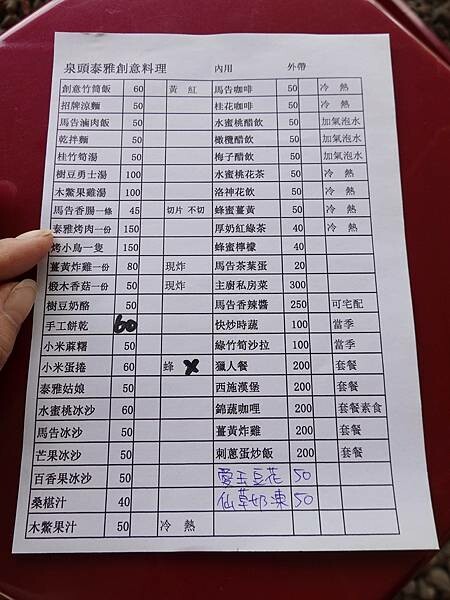 泉頭泰雅創意料理 內用 外帶
創意竹筒飯 60 黃 紅 馬告咖啡 50 冷 熱
招牌涼麵 50 桂花咖啡 50 冷 熱
馬告滷肉飯 50 水蜜桃醋飲 50 加氣泡水
乾拌麵 50 橄欖醋飲 50 加氣泡水
桂竹筍湯 50 梅子醋飲 50 加氣泡水
樹豆勇士湯 100 水蜜桃花茶 50 冷 熱
木鱉果雞湯 100 洛神花飲 50 冷 熱
馬告香腸一條 45 切片 不切 蜂蜜薑黃 50 冷 熱
泰雅烤肉一份 150 厚奶紅綠茶 40 冷 熱
烤小鳥一隻 150 蜂蜜檸檬 40
薑黃炸雞一份 80 現炸 馬告茶葉蛋 20
椴木香菇一份 50 現炸 主廚私房菜 300
樹豆奶酪 50 馬告香辣醬 250 可宅配
手工餅乾 60 快炒時蔬 100 當季
小米麻糬 50 綠竹筍沙拉 100 當季
小米蛋捲 60 蜂 獵人餐 200 套餐
泰雅姑娘 50 西施漢堡 200 套餐
水蜜桃冰沙 60 錦蔬咖哩 200 套餐素食
馬告冰沙 50 薑黃炸雞 200 套餐
芒果冰沙 50 刺蔥蛋炒飯 200 套餐
百香果冰沙 50 愛玉豆花 50
桑椹汁 40 仙草奶凍 50
木鱉果汁 50 冷 熱